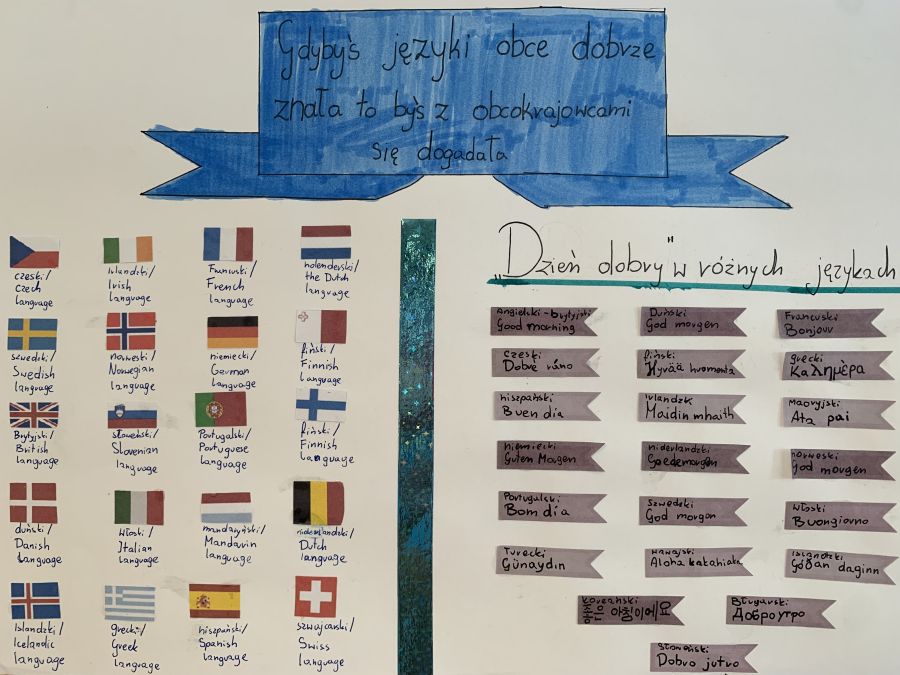 Gdybyś języki obce dobrze
znała to byś z obcokrajowcami
się dogadała
czeski/
czech
language
Irlandzki/
Irish
language
Francuski/
French
language
holenderski/
the Dutch
language
szwedzki/
Swedish
language
norweski/
Norwegian
language
niemiecki/
German
language
fiński/
Finnish
language
Brytyjski/
British
language
słoweński/
Slovenian
language
Portugalski/
Portuguese
language
fiński/
Finnish
language
duński/
Danish
language
Włoski/
Italian
language
mandaryński/
Mandarin
language
niderlandzki/
Dutch
language
Islandzki/
Icelandic
language
grecki/
Greek
language
hiszpański/
Spanish
language
szwajcarski/
Swiss
language
„Dzień dobry" w różnych językach
Angielski-brytyjski
Good morning
Duński
God morgen
Francuski
Bonjour
czeski
Dobré ráno
fiński
Hyvää huomenta
grecki
Καλημέρα
hiszpański
Buen día
irlandzk
Maidin mhaith
Maoryjski
Ata pai
niemiecki
Guten Morgen
niderlandzki
Goedemorgen
norweski
God morgen
Portugalski
Bom día
szwedzki
God morgon
włoski
Buongiorno
Turecki
Günaydın
hawajski
Aloha kakahiaka
islandzki
Góðan daginn
Koreański
좋은 아침이에요
Bługarski
Доброутро
Słoweński
Dobro jutro